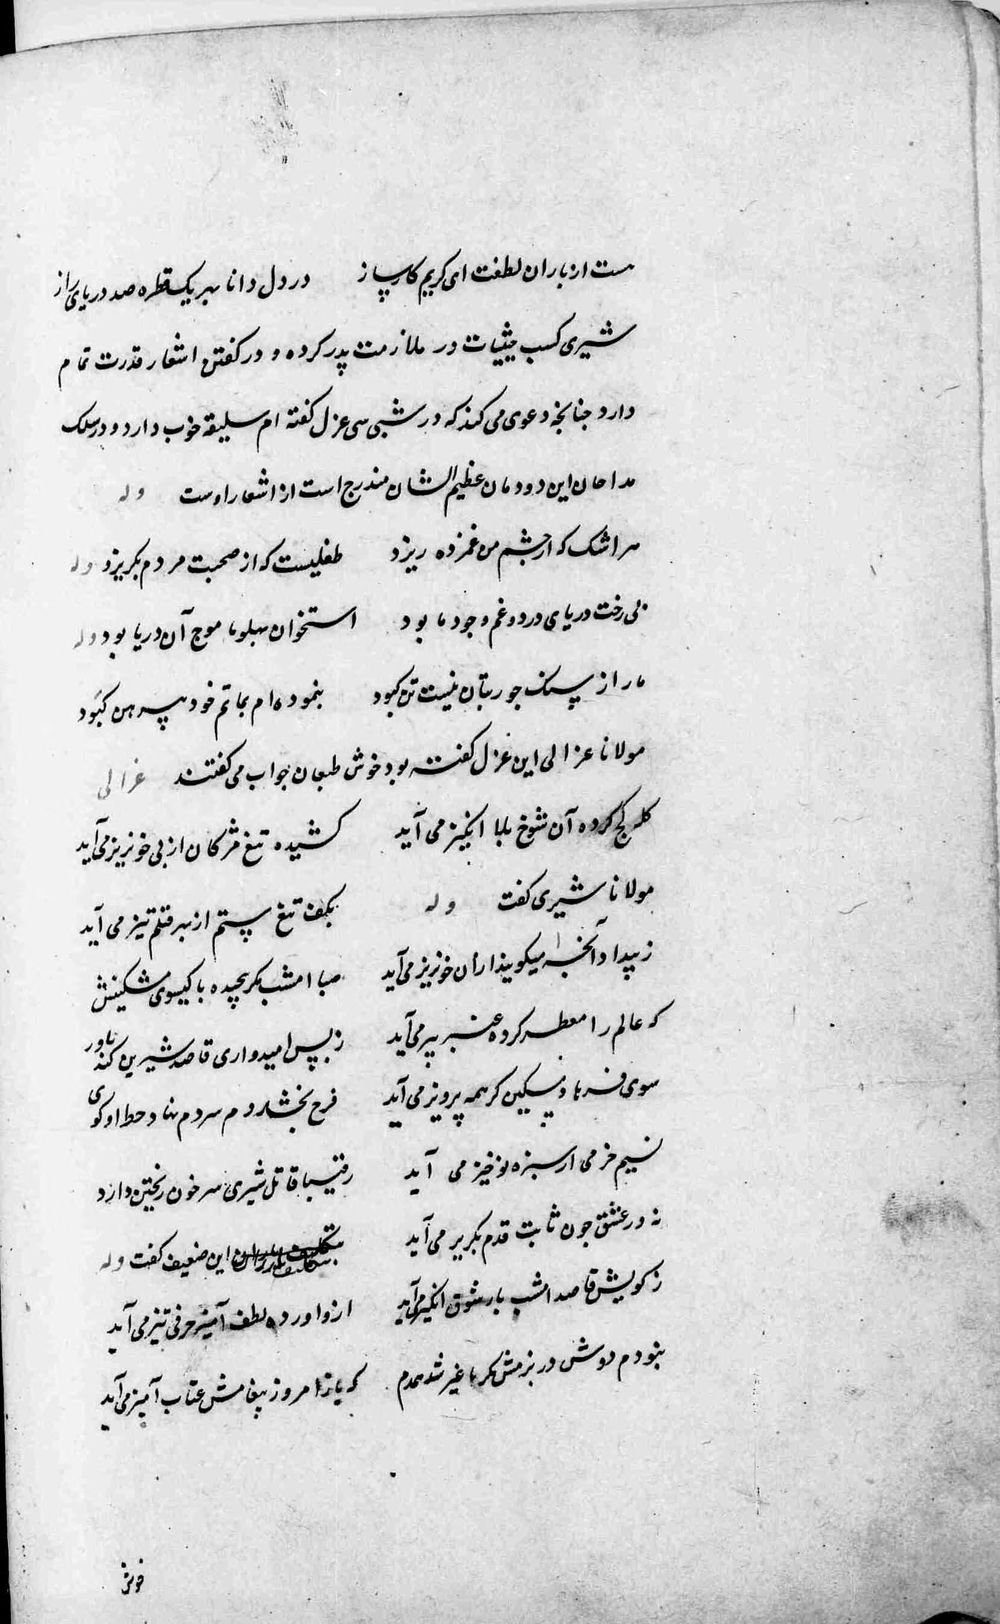 هست از باران لطفت ای کریم کارساز در دل دانا بهر یک قطره صد دریای راز
شیری کسب حیثیات در ملازمت پدر کرده و در کفتن اشعار قدرت تمام
دارد جنانجه دعوی می کند که در شبی سی غزل کفته ام سلیقه خوب دارد و در سلک
مداحان این دودمان عظیم الشان مندرج است از اشعار اوست وله
هر اشک که از جشم من غمزده ریزد طفلیست که از صحبت مردم بکریزد وله
بی رخت دریای درد و غم وجود ما بود استخوان بهلو ما موج آن دریا بود وله
ما را ز سنک جور بتان نیست تن کبود بنموده ام بماتم خود پیرهن کبود
مولانا غزالی این غزل کفته بود خوش طبعان جواب می کفتند غزالی
کله کج کرده آن شوخ بلا انکیز می آید کشیده تیغ مژکان از پی خونریز می آید
مولانا شیری کفت وله بکف تیغ ستم از بهر قتلم تیز می آید
ز بیداد آنجه میکویند ازان خونریز می آید صبا امشب مکر پیچیده با کیسوی مشکینش
که عالم را معطر کرده عنبر بیز می آید ز بس امیدواری قاصد شیرین کند باور
سوی فرهاد مسکین کر همه پرویز می آید فرح بخشد دم سردم بیاد خط او کوی
نسیم خرمی از سبزه نوخیز می آید رقیبا قاتل شیری سر خون ریختن دارد
نه در عشق جون ثابت قدم بکریز می آید بتکلیف یاران این ضعیف کفت وله
ز کویش قاصد امشب باز شوق انکیز می آید ازو آورده لطف آمیز حرفی تیز می آید
نبودم دوش در بزمش مکر با غیر شد همدم که باز امروز پیغامش عتاب آمیز می آید